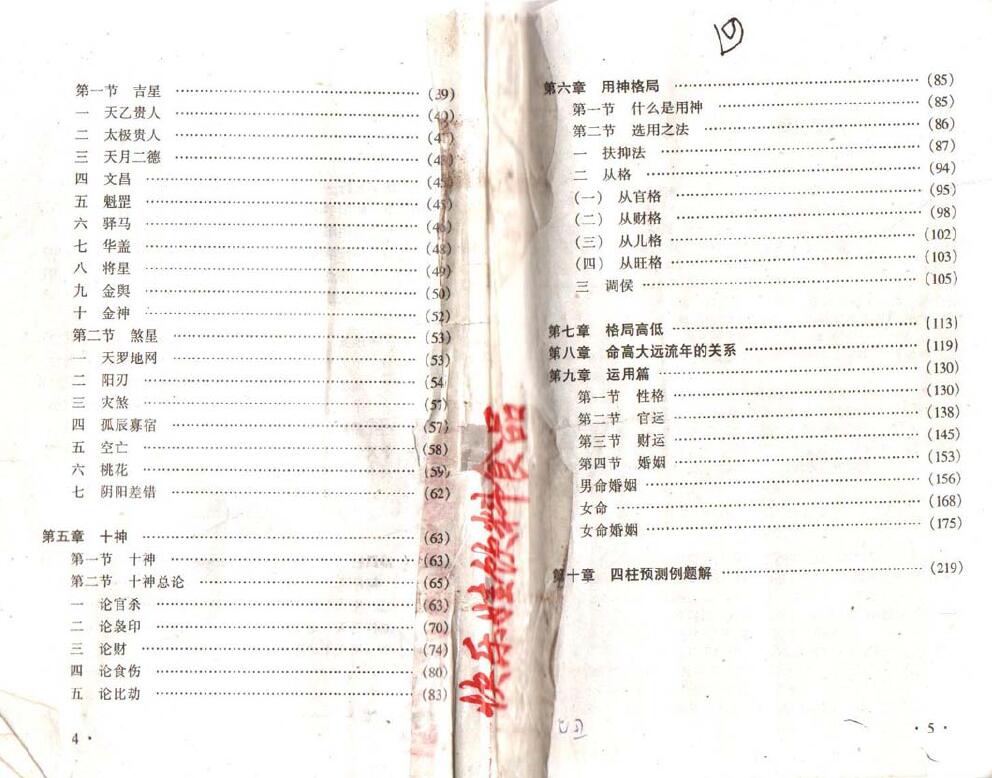 第一节 吉星 ……………………………… (39)
一 天乙贵人 ……………………………… (40)
二 太极贵人 ……………………………… (4
三 天月二德 ……………………………… (43)
四 文昌 ……………………………… (45)
五 魁罡 ……………………………… (45)
六 驿马 ……………………………… (46)
七 华盖 ……………………………… (48)
八 将星 ……………………………… (49)
九 金舆 ……………………………… (50)
十 金神 ……………………………… (52)
第二节 煞星 ……………………………… (53)
一 天罗地网 ……………………………… (53)
二 阳刃 ……………………………… (54
三 灾煞 ……………………………… (57)
四 孤辰寡宿 ……………………………… (57)
五 空亡 ……………………………… (58)
六 桃花 ……………………………… (59)
七 阴阳差错 ……………………………… (62)
第五章 十神 ……………………………… (63)
第一节 十神 ……………………………… (63)
第二节 十神总论 ……………………………… (65)
一 论官杀 ……………………………… (63)
二 论袅印 ……………………………… (70)
三 论财 ……………………………… (74)
四 论食伤 ……………………………… (80)
五 论比动 ……………………………… (83)
4 ·
快乐
食品
四
第六章 用神格局 ……………………………… (85)
第一节 什么是用神 ……………………………… (85)
第二节 选用之法 ……………………………… (86)
一 扶抑法 ……………………………… (87)
二 从格 ……………………………… (94)
(一) 从官格 ……………………………… (95)
(二) 从财格 ……………………………… (98)
(三) 从儿格 ……………………………… (102)
(四) 从旺格 ……………………………… (103)
三 调侯 ……………………………… (105)
第七章 格局高低 ……………………………… (113)
第八章 命高大远流年的关系 ……………………………… (119)
第九章 运用篇 ……………………………… (130)
第一节 性格 ……………………………… (130)
第二节 官运 ……………………………… (138)
第三节 财运 ……………………………… (145)
第四节 婚姻 ……………………………… (153)
男命婚姻 ……………………………… (156)
女命 ……………………………… (168)
女命婚姻 ……………………………… (175)
第十章 四柱预测例题解 ……………………………… (219)
· 5 ·